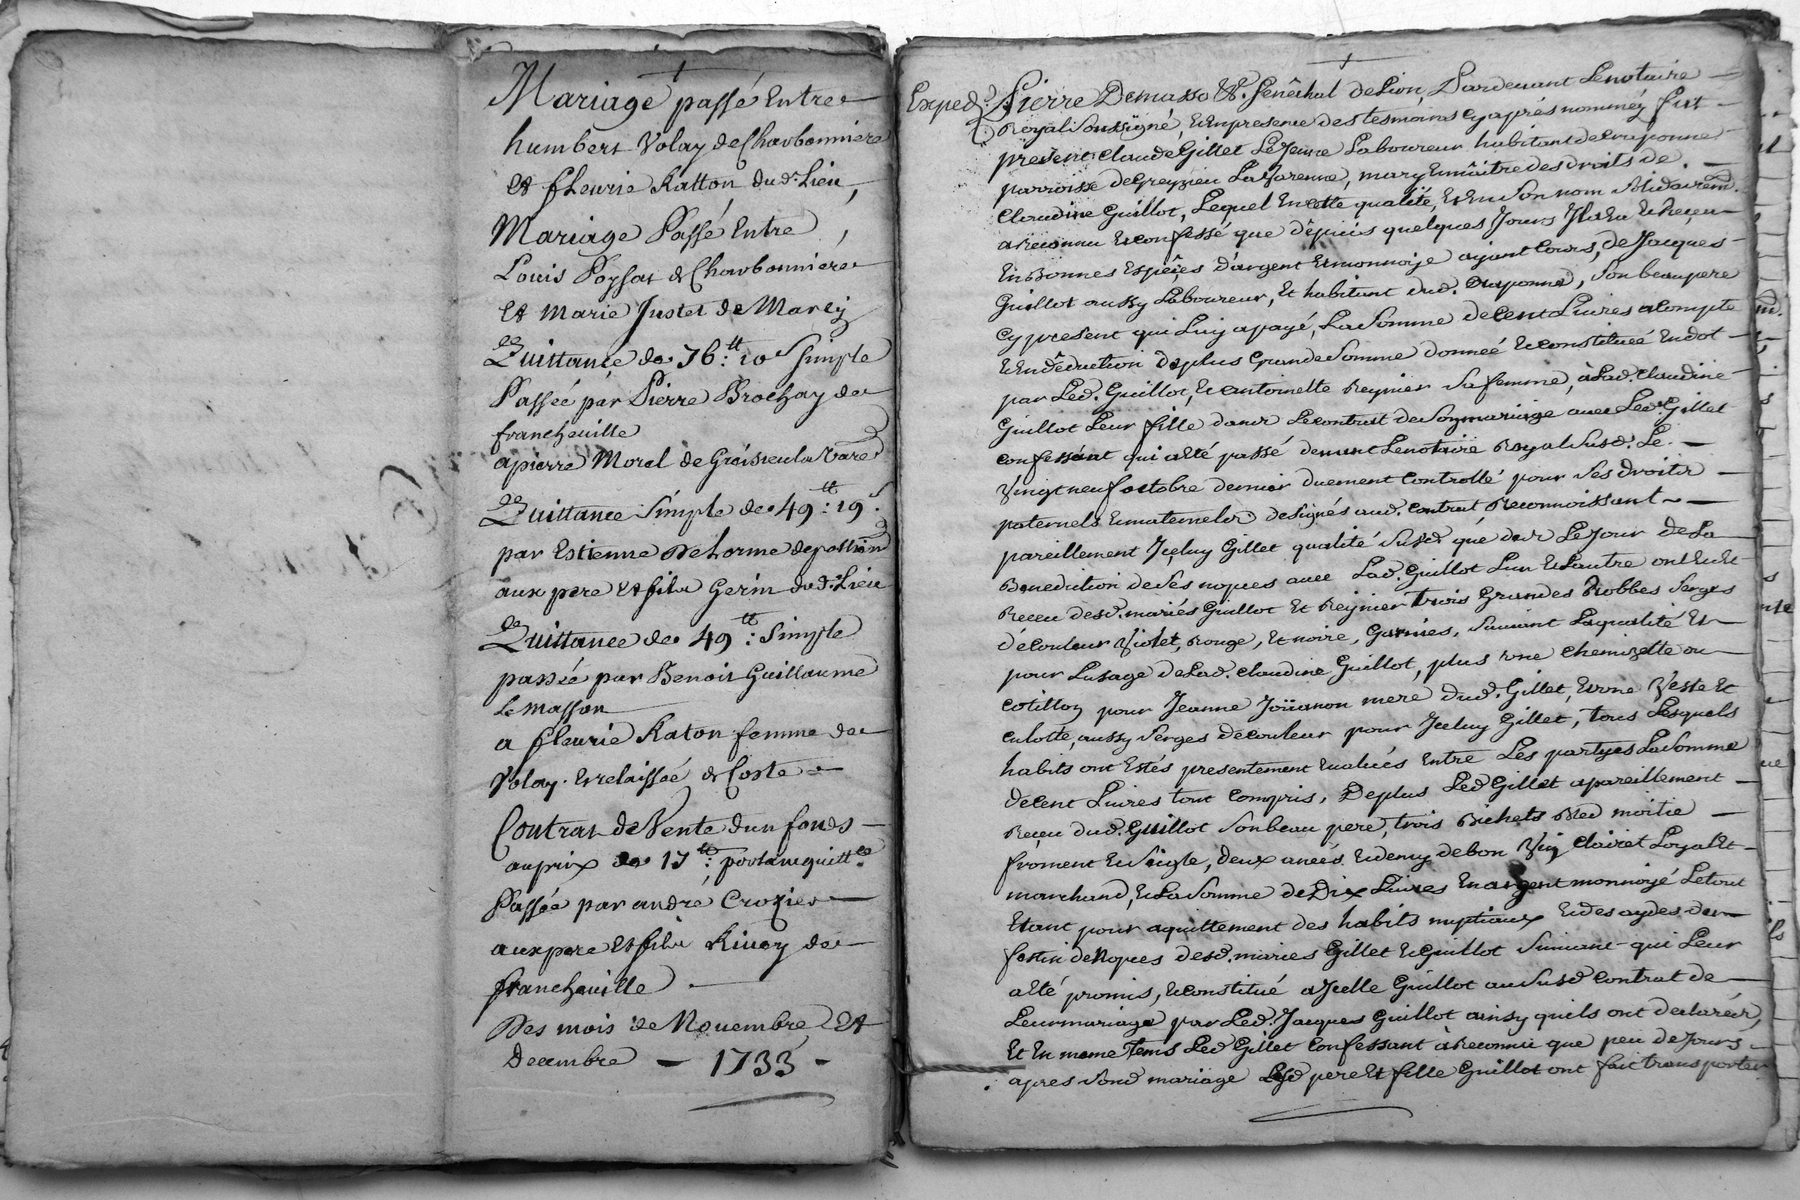 Mariage passé Entre
humbert Volay de Charbonniere
et fleurie Ratton dud. Lieu,
Mariage Passé Entre
Louis Poysat de Charbonniere
et Marie Justet de Marcy
Quittance de 76tt: 10s Simple
Passée par Pierre Brochay de
francheuille
a pierre Morel de Greisieu la Vare
Quittance Simple de 49tt: 19s.
par Estienne Delorme de
aux pere et fils Gerin dud. Lieu
Quittance de 49tt: Simple
passée par Benoit Guillaume
Le Masson
a fleurie Raton femme de
Volay. et relaissée de Coste
Contrat de Vente dun fonds
au prix de 17tt: portant quittce
Passée par andré Crozier
aux pere et fils Rivoy de
francheuille
Des mois de Nouembre et
Decembre - 1733 -
Exped. Pierre Demasso &. Senêchal de Lion, Pardeuant Le notaire
Royal Soussigné, et en presence des tesmoins cy aprés nommés fut
present Claude Gillet Le Jeune Laboureur habitant de Craponne
parroisse de Greyzieu La Varenne, mary et maître des droits de
Claudine Guillot, Lequel en cette qualité, et en son nom solidairemt.
a reconnu et confessé que dêpuis quelques Jours Il a eu et Reçeu
en Bonnes Espêces d'argent et monnoye ayant Cours, de Jacques
Guillot aussy Laboureur, et habitant dud. Craponne, son beaupere
cy present qui Luy a payé, La Somme de Cent Liures a compte
et en dêduction de plus Grande Somme donneé et constituée en dot
par Led. Guillot, et antoinette Reynier sa femme, à Lad. Claudine
Guillot Leur fille dans Le contrat de Son mariage auec Led. Gillet
confessant qui a été passé deuant Le notaire Royal Susd. Le
Vingt neuf octobre dernier duement Controllé pour ses droits
paternels et maternels designés aud. Contrat Reconnoissant
pareillement Iceluy Gillet qualité Susd que dez Le Jour de La
Benediction de Ses nopces auec Lad. Guillot Lun et Lautre ont eu et
Receu desd. mariés Guillot et Reynier trois Grandes Robbes Serges
dé couleur Violet, Rouge, et noire, Garnies, Suiuant La qualité et
pour Lusage de Lad. Claudine Guillot, plus une chemizette ou
Cotillon pour Jeanne Joüanon mere dud. Gillet, et une Veste et
culotte, aussy Serges de couleur pour Iceluy Gillet, tous Lesquels
habits ont Estés presentement eualués Entre Les partyes La Somme
de cent Liures tout compris, De plus Led Gillet a pareillement
Reçeu dud. Guillot son beau pere, trois Bichets Bled moitie
froment et Seigle, deux aneés et demy de bon Vin Clairet Loyal et
marchand, et La Somme de Dix Liures en argent monnoyé Le tout
Etant pour aquittement des habits nuptiaux et des aydes du
festin de Nopces desd. maries Gillet et Guillot Suiuant qui Leur
a été promis, et constitué a Icelle Guillot au Susd Contrat de
Leur mariage par Led. Jacques Guillot ainsy quils ont declarés,
Et En mame tems Led Gillet Confessant à Reconnu que peu de Jours
apres sond mariage Lesd pere et fille Guillot ont fait transporter